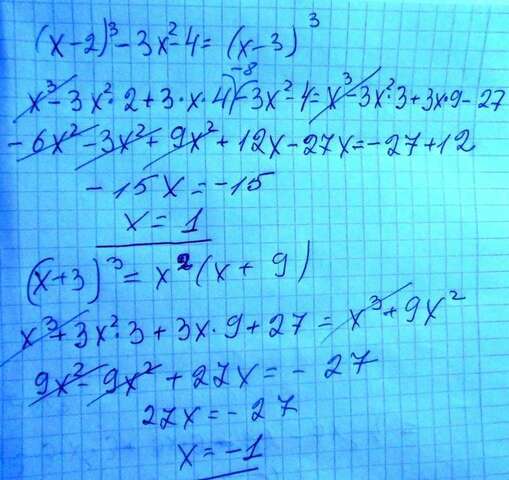 (x-2)³-3x²-4=(x-3)³
x³-3x²·2+3·x·4-8-3x²-4=x³-3x²·3+3x·9-27
-6x²-3x²+9x²+12x-27x=-27+12
-15x=-15
x=1
(x+3)³=x²(x+9)
x³+3x²·3+3x·9+27=x³+9x²
9x²-9x²+27x=-27
27x=-27
x=-1